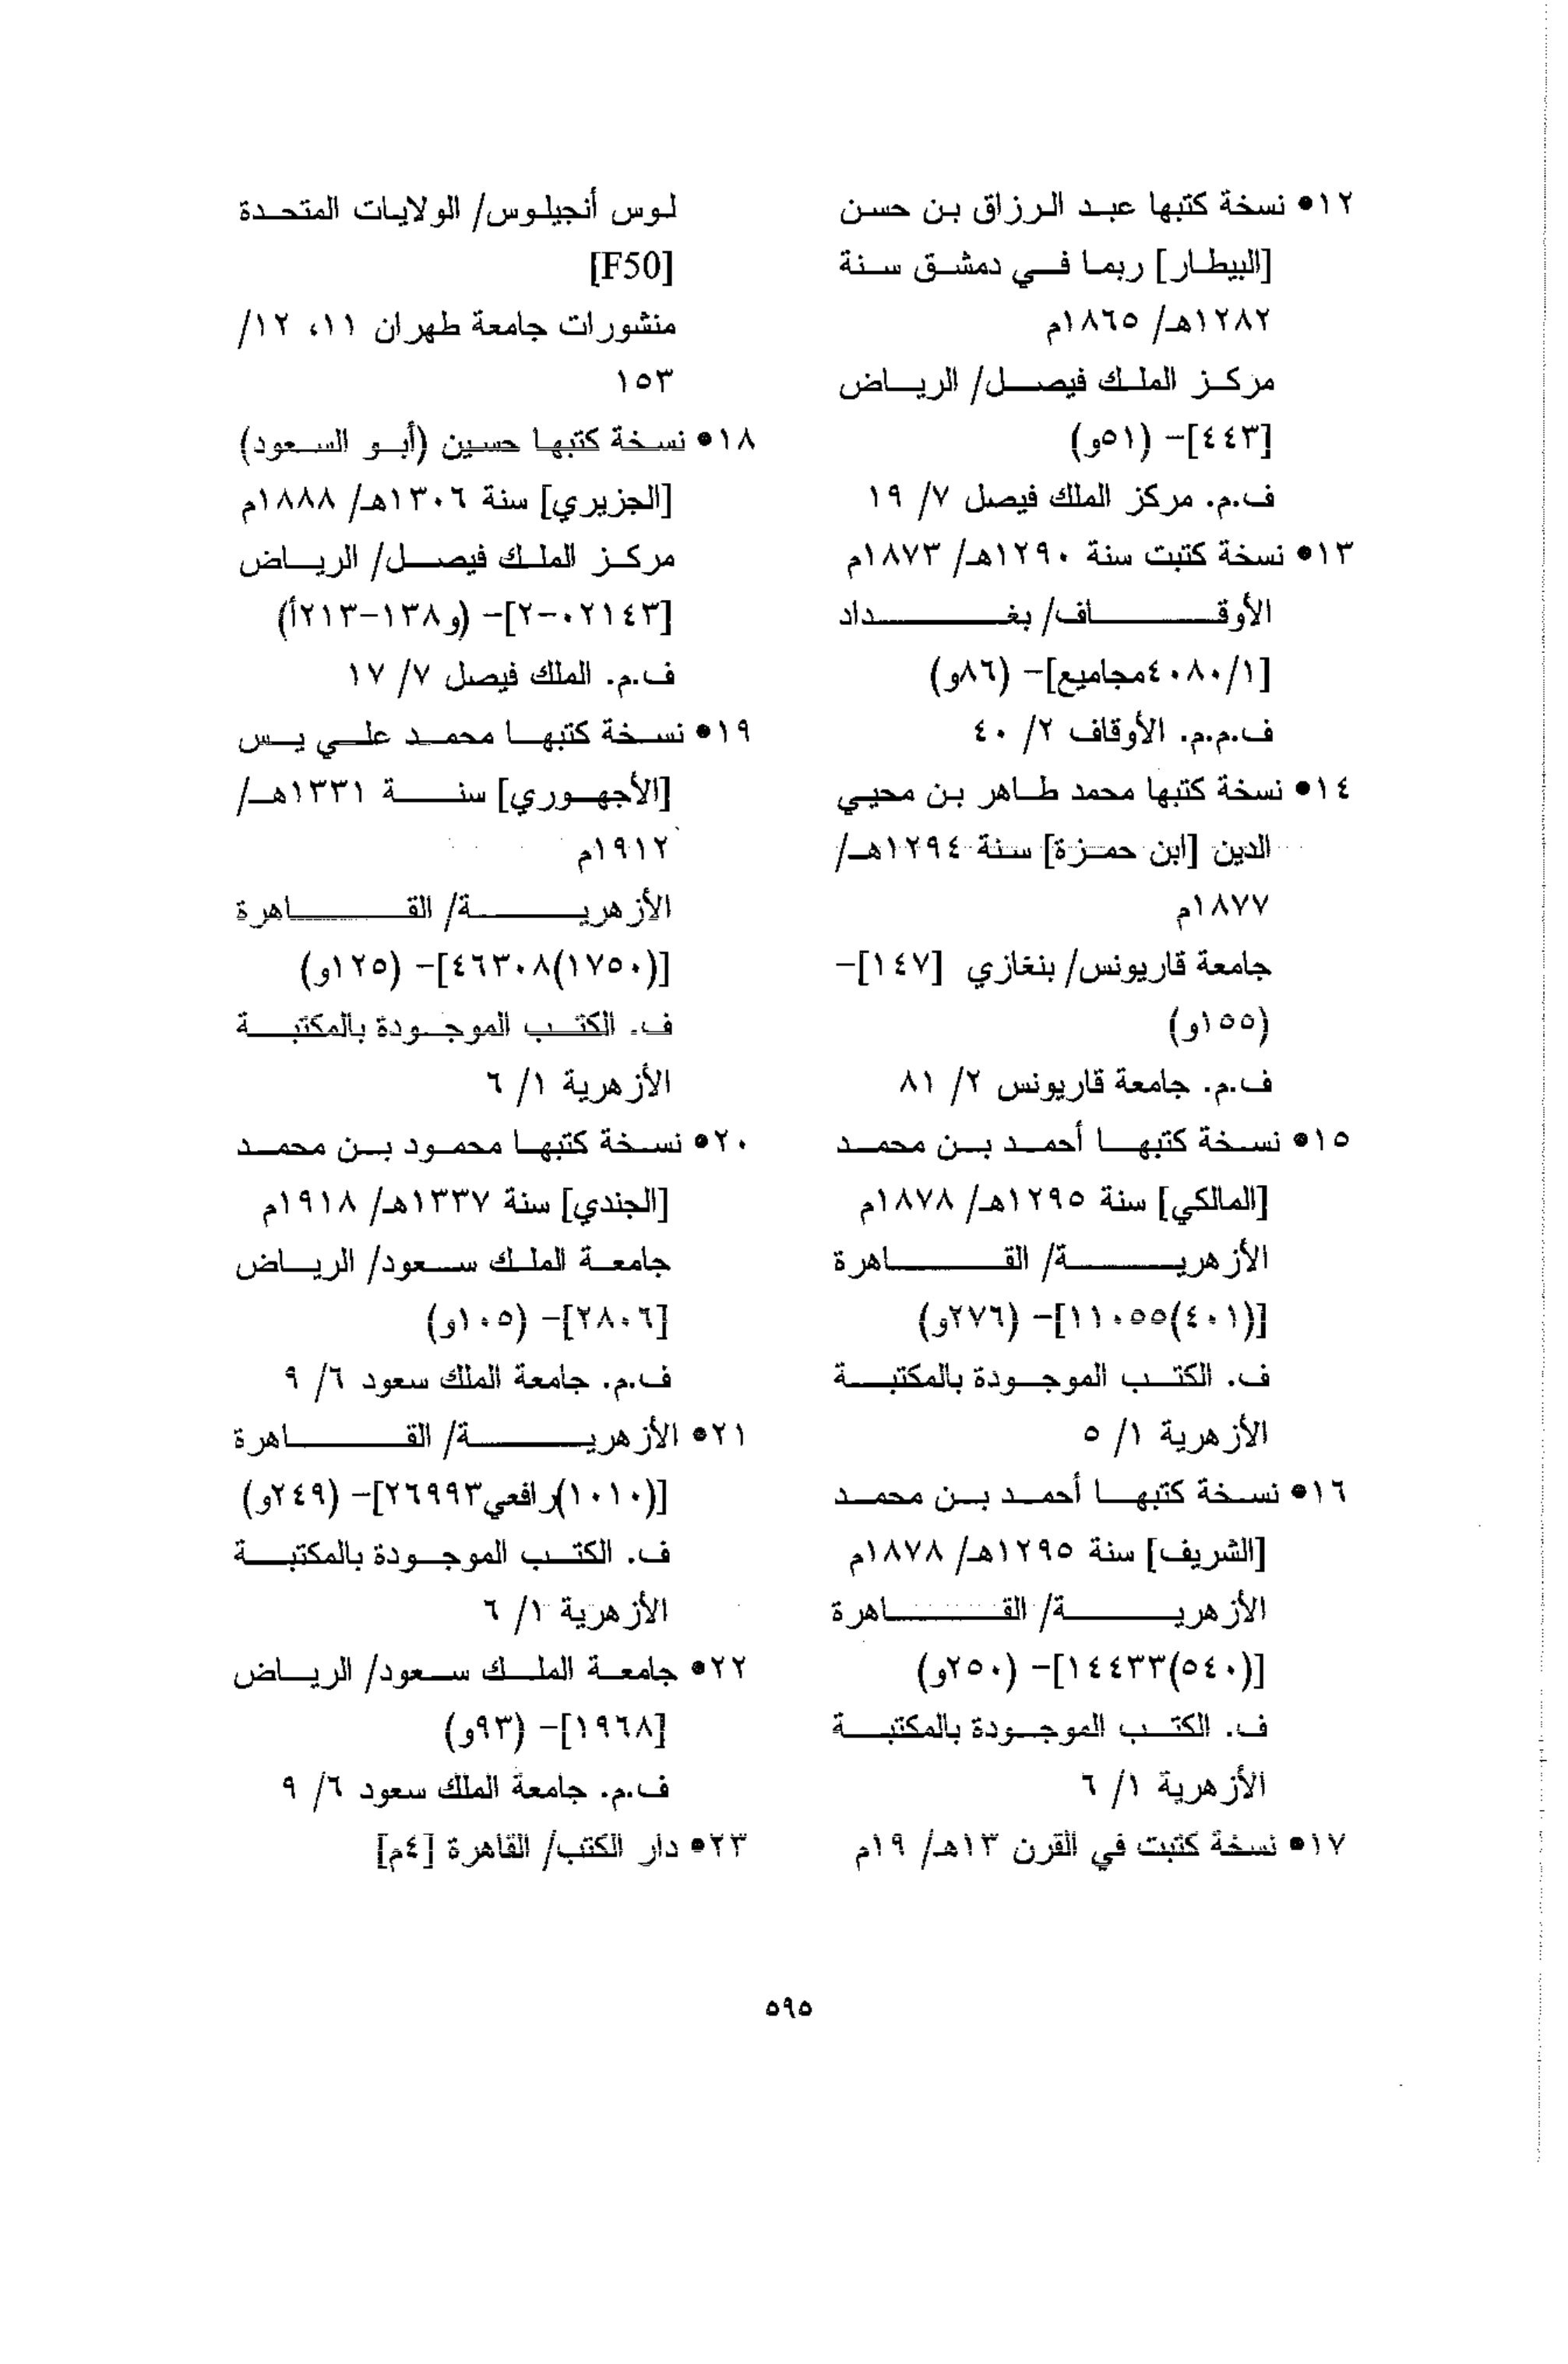 ١٢• نسخة كتبها عبد الرزاق بن حسن
[البيطار] ربما في دمشق سنة
١٢٨٢هـ/ ١٨٦٥م
مركز الملك فيصل/ الرياض
[٤٤٣]- (٥١و)
ف.م. مركز الملك فيصل ٧/ ١٩
١٣• نسخة كتبت سنة ١٢٩٠هـ/ ١٨٧٣م
الأوقاف/ بغداد
[٤٠٨٠/١مجاميع]- (٨٦و)
ف.م.م. الأوقاف ٢/ ٤٠
١٤• نسخة كتبها محمد طاهر بن محيي
الدين [ابن حمزة] سنة ١٢٩٤هـ/
١٨٧٧م
جامعة قاريونس/ بنغازي [١٤٧]-
(١٥٥و)
ف.م. جامعة قاريونس ٢/ ٨١
١٥• نسخة كتبها أحمد بن محمد
[المالكي] سنة ١٢٩٥هـ/ ١٨٧٨م
الأزهرية/ القاهرة
[(٤٠١)١١٠٥٥]- (٢٧٦و)
ف. الكتب الموجودة بالمكتبة
الأزهرية ١/ ٥
١٦• نسخة كتبها أحمد بن محمد
[الشريف] سنة ١٢٩٥هـ/ ١٨٧٨م
الأزهرية/ القاهرة
[(٥٤٠)١٤٤٣٣]- (٢٥٠و)
ف. الكتب الموجودة بالمكتبة
الأزهرية ١/ ٦
١٧• نسخة كتبت في القرن ١٣هـ/ ١٩م
لوس أنجيلوس/ الولايات المتحدة
[F50]
منشورات جامعة طهران ١١، ١٢/
١٥٣
١٨• نسخة كتبها حسين (أبو السعود)
[الجزيري] سنة ١٣٠٦هـ/ ١٨٨٨م
مركز الملك فيصل/ الرياض
[٠٢١٤٣-٢]- (و١٣٨-٢١٣أ)
ف.م. الملك فيصل ٧/ ١٧
١٩• نسخة كتبها محمد علي يس
[الأجهوري] سنة ١٣٣١هـ/
١٩١٢م
الأزهرية/ القاهرة
[(١٧٥٠)٤٦٣٠٨]- (١٢٥و)
ف. الكتب الموجودة بالمكتبة
الأزهرية ١/ ٦
٢٠• نسخة كتبها محمود بن محمد
[الجندي] سنة ١٣٣٧هـ/ ١٩١٨م
جامعة الملك سعود/ الرياض
[٢٨٠٦]- (١٠٥و)
ف.م. جامعة الملك سعود ٦/ ٩
٢١• الأزهرية/ القاهرة
[(١٠١٠)رافعي٢٦٩٩٣]- (٢٤٩و)
ف. الكتب الموجودة بالمكتبة
الأزهرية ١/ ٦
٢٢• جامعة الملك سعود/ الرياض
[١٩٦٨]- (٩٣و)
ف.م. جامعة الملك سعود ٦/ ٩
٢٣• دار الكتب/ القاهرة [٤م]
٥٩٥